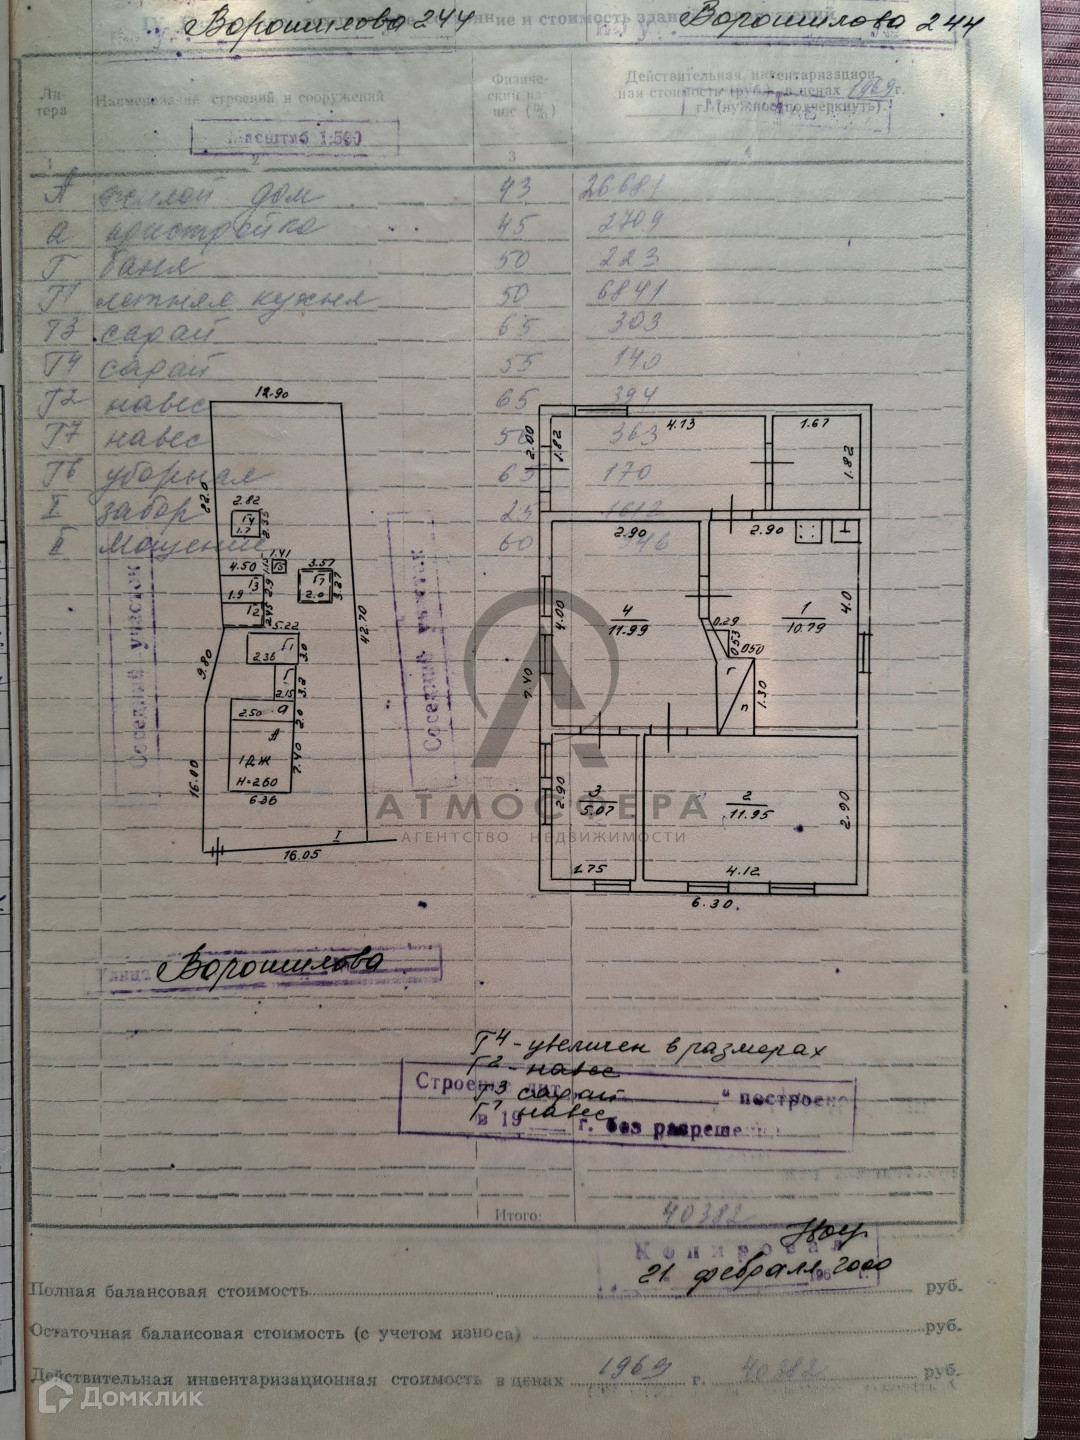 Ворошилова 244
Ворошилова 244
ние и стоимость
Ли-
тера
Наименование строений и сооружений
Физиче-
ский из-
нос (%)
Действительная инвентаризацион-
ная стоимость (руб.) в ценах 1969 г.
(нужное подчеркнуть)
Масштаб 1:500
1 2 3 4
А жилой дом 43 26681
а пристройка 45 2709
Г баня 50 223
Г1 летняя кухня 50 6841
Г3 сарай 65 303
Г4 сарай 55 140
Г2 навес 65 394
Г7 навес 50 363
Г6 уборная 65 170
I забор 25 1612
II Мощение 60 946
12.90
22.0
2.82
Г4
1.7
2.55
1.41
Г5
4.50
Г3
1.9
2.9
Г2
2.45
3.57
Г7
2.0
3.27
5.22
Г1
2.36
3.0
Г
2.15
3.2
9.80
42.70
2.50
а
2.0
А
1Д.Ж
Н=2.60
7.40
6.36
16.00
I
16.05
Соседний участок
Соседний участок
4.13
1.67
2.00
1.82
1.82
2.90
2.90
4.00
4
11.99
0.29
0.53
0.50
1
10.79
4.0
7.40
1.30
п
2.90
3
5.07
2
11.95
2.90
1.75
4.12
6.30.
АТМОСФЕРА
АГЕНТСТВО НЕДВИЖИМОСТИ
Улица Ворошилова
Г4 - увеличен в размерах
Г2 - навес
Г3 сарай
Г7 навес
Строение лит. " построено
в 19 г. без разрешения
Итого: 40382
Копировал
21 февраля 2000
196 г.
Полная балансовая стоимость руб.
Остаточная балансовая стоимость (с учетом износа) руб.
Действительная инвентаризационная стоимость в ценах 1969 г. 40382 руб.
Домклик